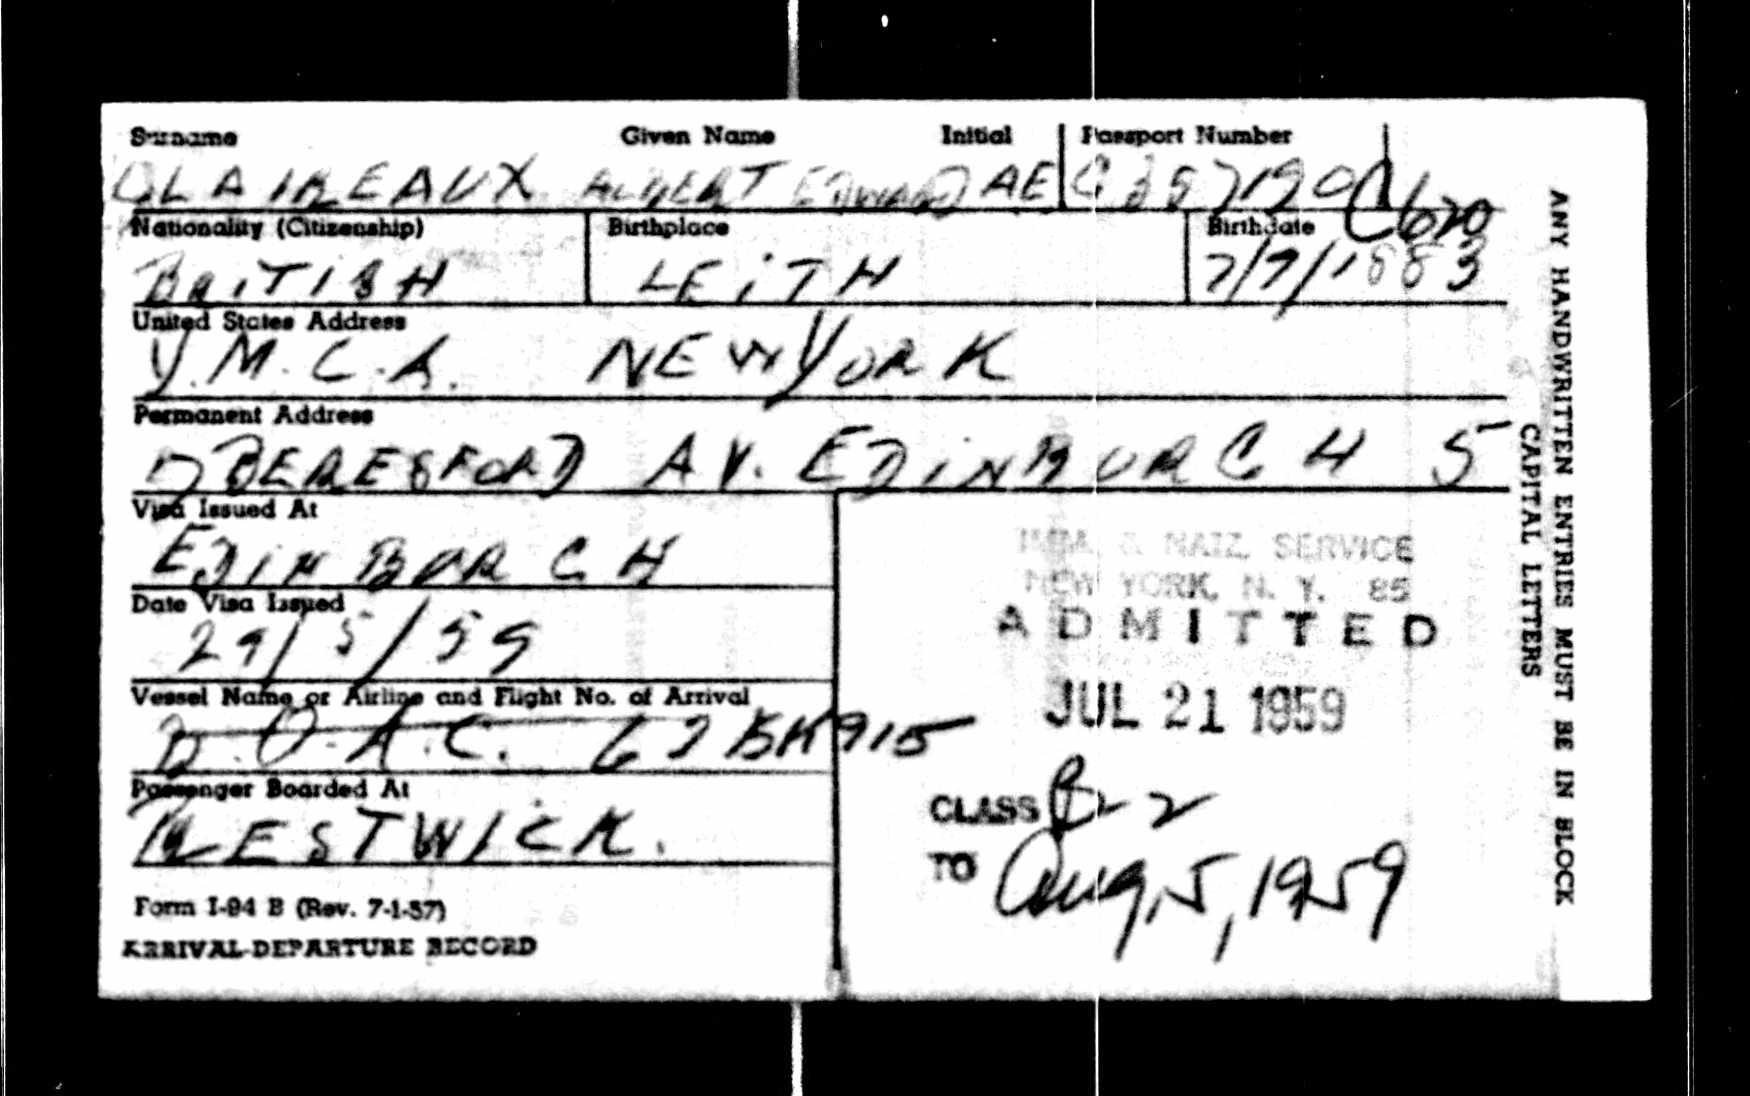 Surname Given Name Initial Passport Number
CLAIREAUX ALBERT EDWARD AE C 357190 C620
Nationality (Citizenship) Birthplace Birthdate
BRITISH LEITH 7/7/1883
United States Address
Y.M.C.A. NEW YORK
Permanent Address
7 BERESFORD AV. EDINBURGH 5
Visa Issued At
EDINBURGH
Date Visa Issued
29/5/59
Vessel Name or Airline and Flight No. of Arrival
B.O.A.C. 62 BK 915
Passenger Boarded At
PRESTWICK.
Form I-94 B (Rev. 7-1-57)
ARRIVAL-DEPARTURE RECORD
IMM. & NATZ. SERVICE
NEW YORK, N. Y. 85
ADMITTED
JUL 21 1959
CLASS B-2
TO Aug, 5, 1959
ANY HANDWRITTEN ENTRIES MUST BE IN BLOCK
CAPITAL LETTERS